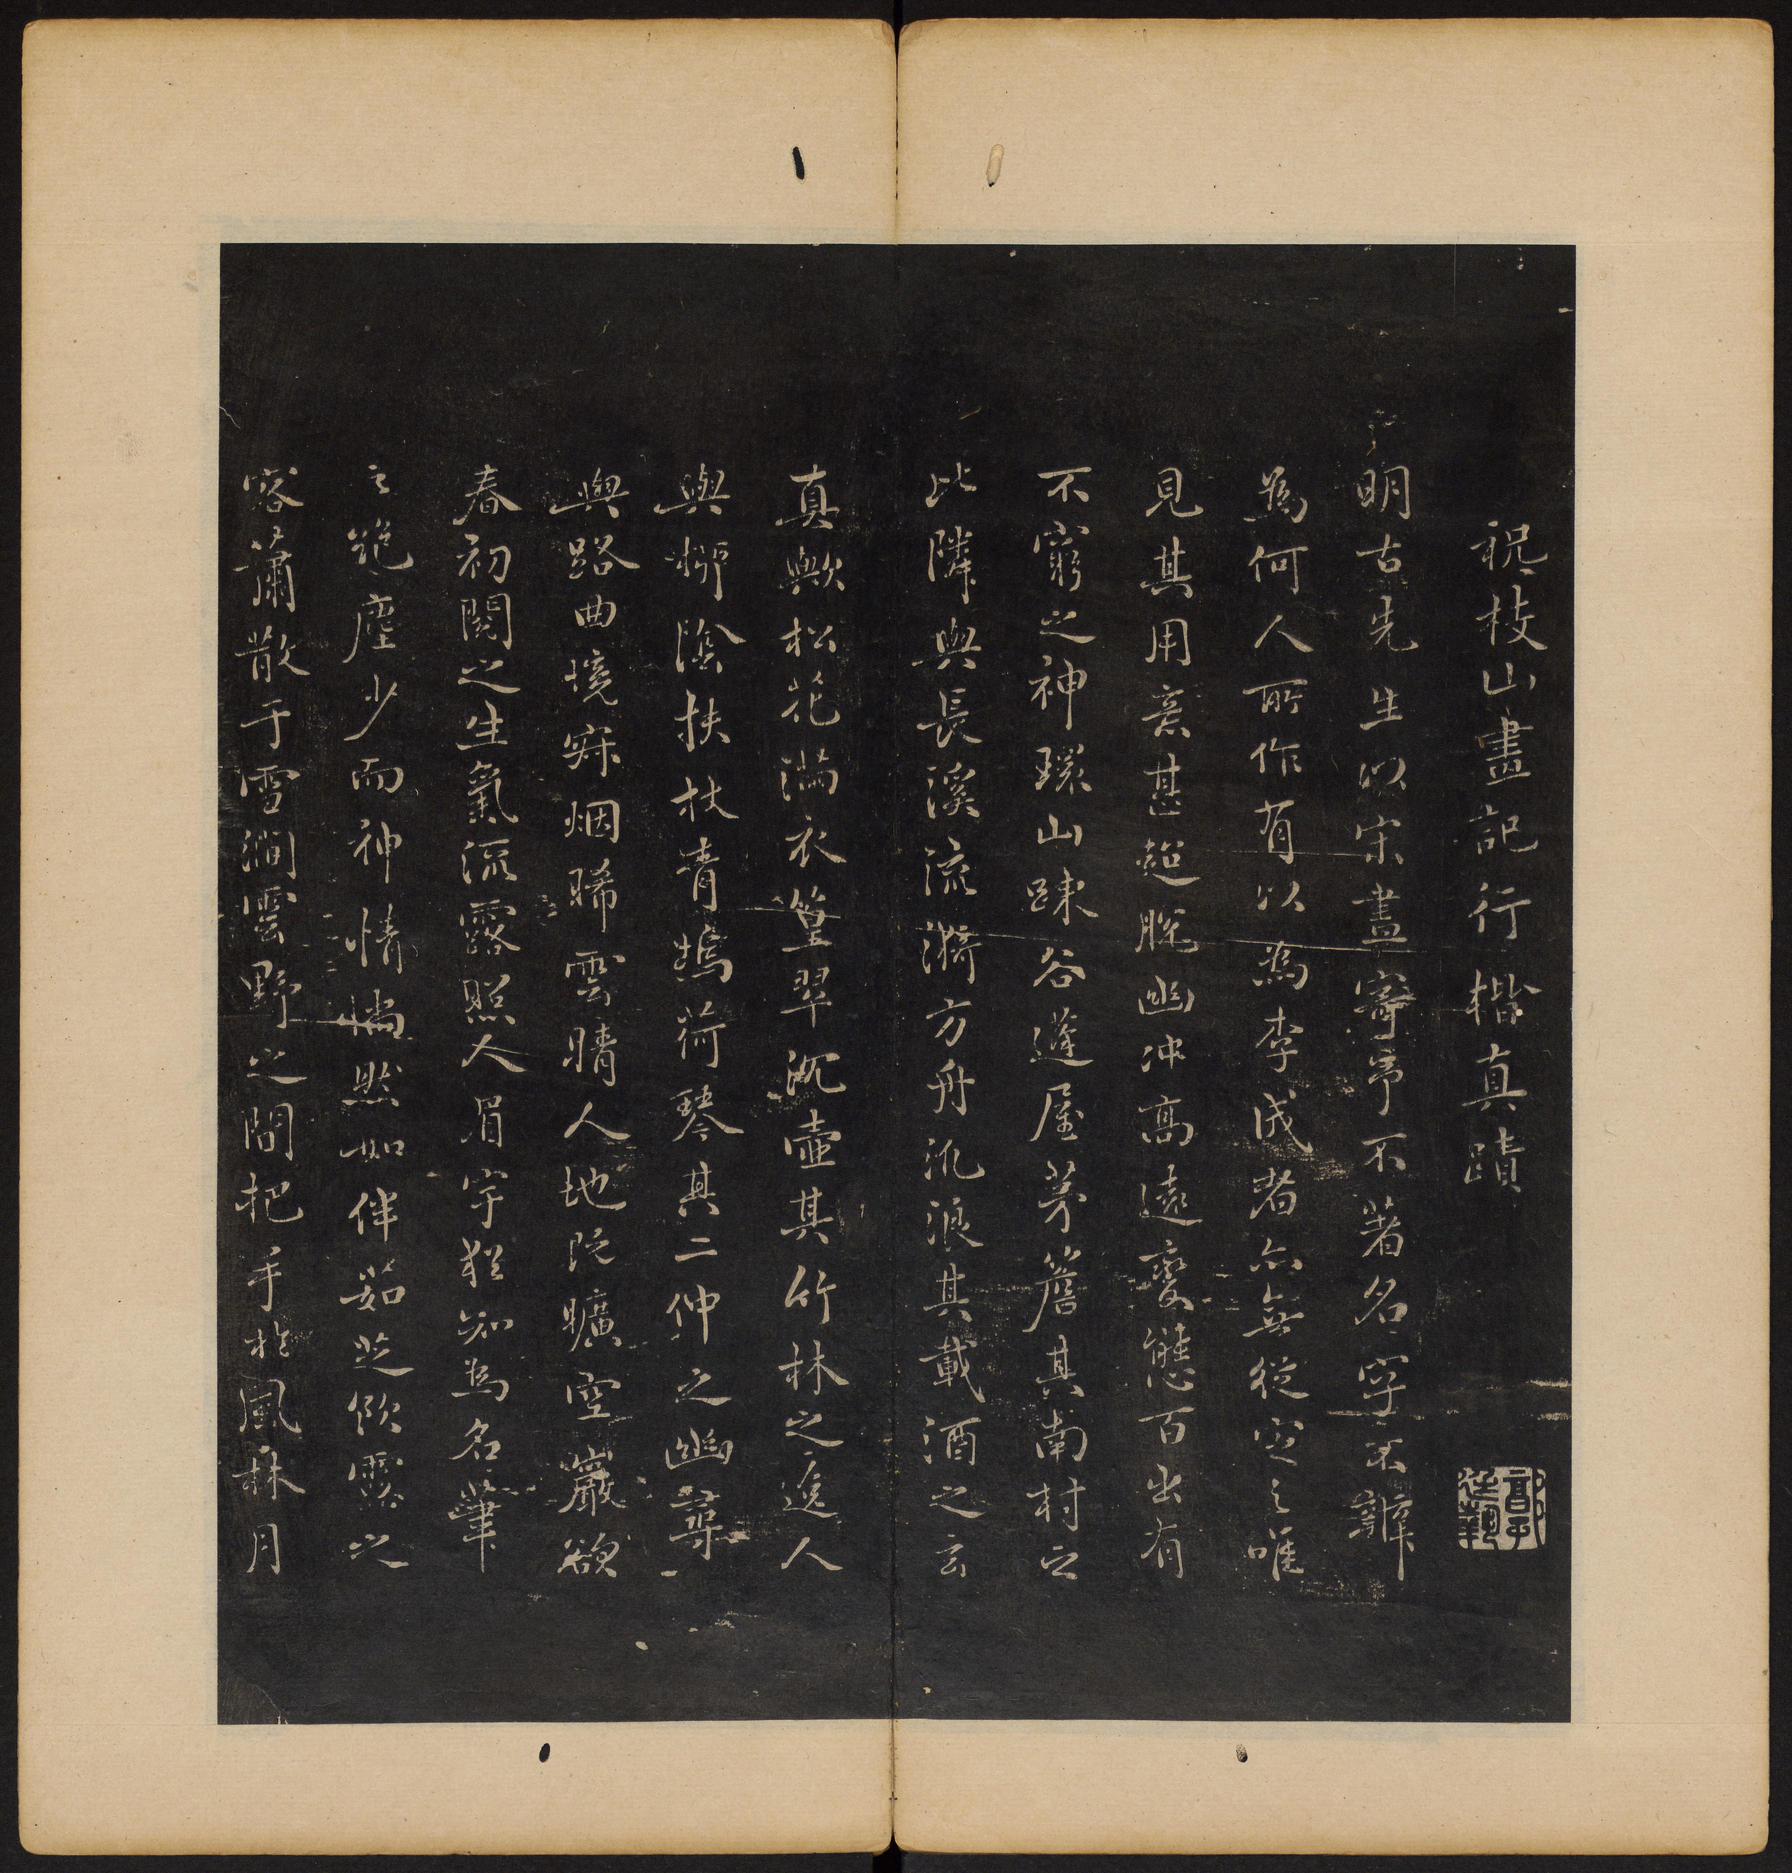 祝枝山畫記行楷真蹟
明古先生以宋畫寄予不著名字不辨
為何人所作有以為李成者亦無從定之唯
見其用意甚超脫幽冲高遠變態百出有
不窮之神環山疎谷蓬屋茅簷其南村之
比隣與長溪流漪方舟汎浪其載酒之玄
真歟松花滿衣篁翠沉壺其竹林之逸人
與柳陰扶杖青塢荷琴其二仲之幽尋
與路曲境寂烟晞雲晴人地既曠空巖欲
春初閱之生氣流露照人眉宇猶知為名筆
之絕塵少而神情惝然如伴茹芝飲露之
客蕭散于雪澗雲野之間把手於風林月